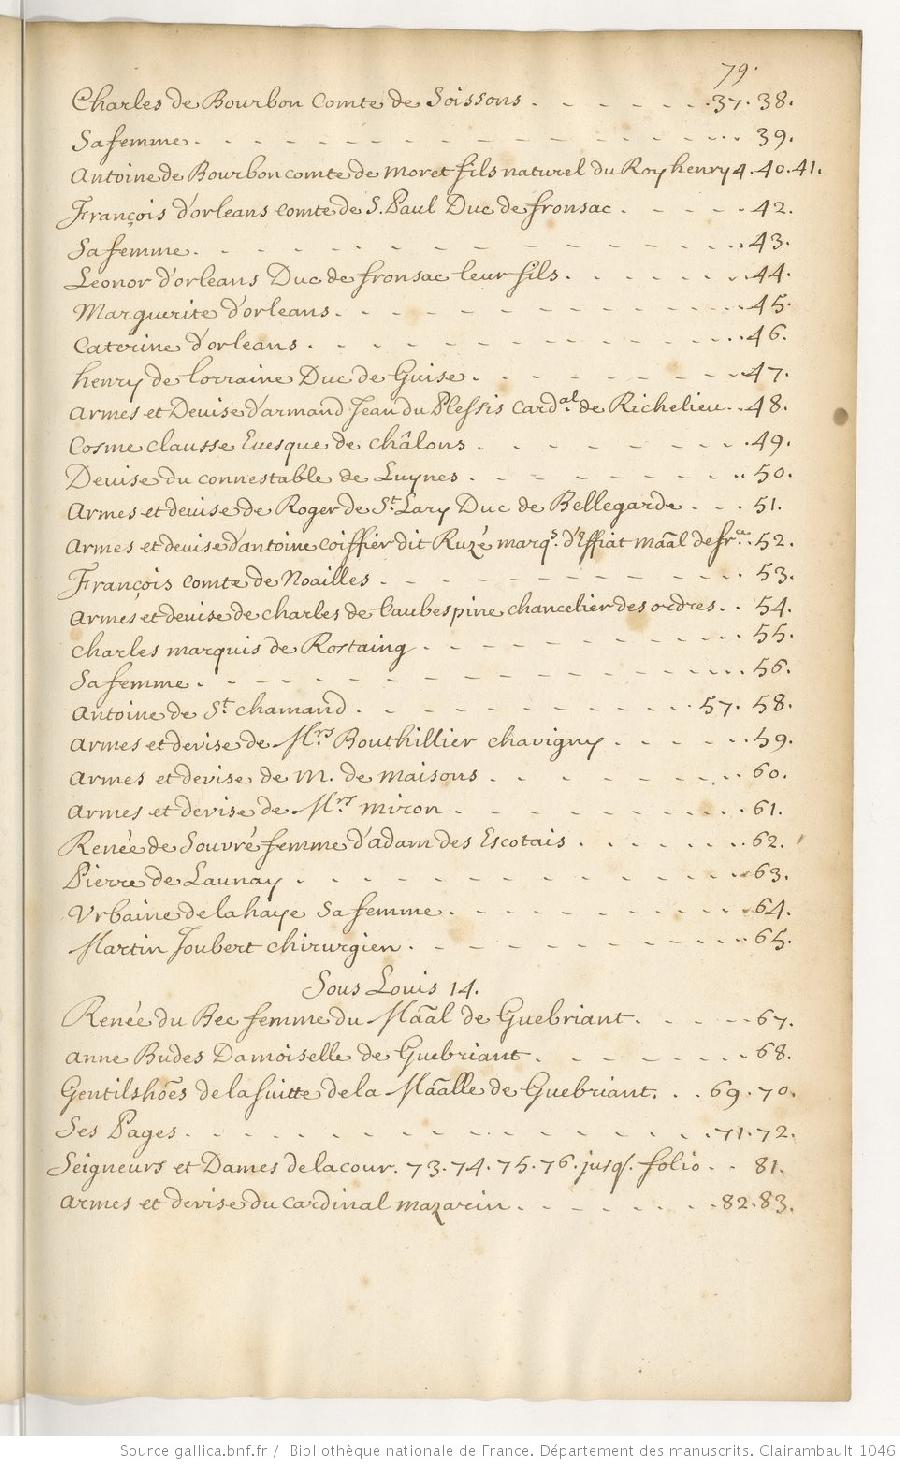 79.
Charles de Bourbon Comte de Soissons . - - - - - - .37.38.
Sa femme. - - - - - - - - - - - - - - .. 39.
Antoine de Bourbon comte de moret fils naturel du Roy henry 4. 40.41.
François d'orleans comte de S. Paul Duc de fronsac . - - - - .42.
Sa femme. - - - - - - - - - - - - - - ..43.
Leonor d'orleans Duc de fronsac leur fils. - - - - - ..44.
Marguerite d'orleans. - - - - - - - - - - ..45.
Caterine d'orleans . - - - - - - - - - - ..46.
henry de lorraine Duc de Guise. - - - - - - -47.
armes et Devise d'armand Jean du Plessis card.al de Richelieu. .48.
Cosme clausse Euesque de châlons . - - - - - - .49.
Deuise du connestable de Luynes . - - - - - - .. 50.
Armes et deuise de Roger de St. Lary Duc de Bellegarde . - - . 51.
Armes et deuise d'antoine coiffier dit Ruzé marqs. d'Effiat maal de fra. .52.
François comte de Noailles . - - - - - - - - . 53.
Armes et deuise de charles de laubespine chancelier des ordres. . . 54.
charles marquis de Rostaing . - - - - - - - - .. 55.
Sa femme . - - - - - - - - - - - - - .. 56.
Antoine de St. chamand . - - - - - - - - .57. 58.
Armes et devise de Mrs Bouthillier chavigny . - - - -.59.
Armes et devise de M. de maisons . - - - - - - .. 60.
Armes et devise de Mrs. miron . - - - - - - - .. 61.
Renée de Souvré femme d'adam des Escotais . - - - - ..62.
Pierre de Launay . - - - - - - - - - - - ..63.
Vrbaine de la haye Sa femme . - - - - - - - -64.
Martin Joubert chirurgien . - - - - - - - - ..65.
Sous Louis 14.
Renée du Bec femme du Maal de Guebriant . - - - -67.
anne Budes Damoiselle de Guebriant . - - - - - - 68.
Gentilshoes de la suitte de la Maalle de Guebriant . . . 69.70.
Ses Pages . - - - - - - - - - - - - .71.72.
Seigneurs et Dames de la cour. 73.74.75.76. jusq. folio . - 81.
Armes et devise du cardinal mazarin . - - - - - .82.83.
Source gallica.bnf.fr / Bibliothèque nationale de France. Département des manuscrits. Clairambault 1046